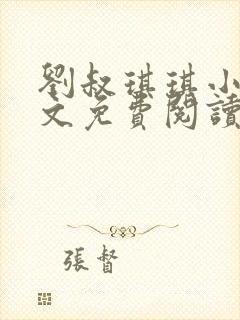 劉叔琪琪小
文免費閱讀
張督